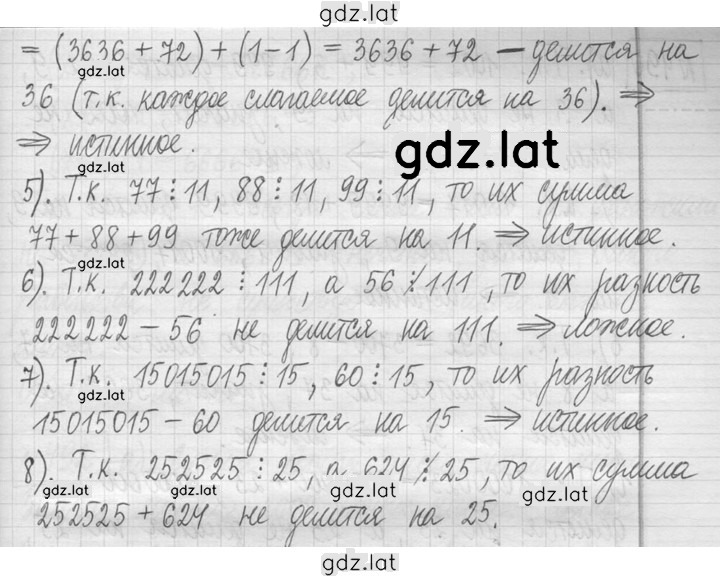 gdz.lat
= (3636 + 72) + (1 - 1) = 3636 + 72 — делится на
gdz.lat
36 (т.к. каждое слагаемое делится на 36). ⇒
⇒ истинное.
gdz.lat
5). Т.к. 77 ⋮ 11, 88 ⋮ 11, 99 ⋮ 11, то их сумма
77 + 88 + 99 тоже делится на 11. ⇒ истинное.
gdz.lat
6). Т.к. 222222 ⋮ 111, а 56 ⋮̸ 111, то их разность
222222 - 56 не делится на 111. ⇒ ложное.
gdz.lat
7). Т.к. 15015015 ⋮ 15, 60 ⋮ 15, то их разность
gdz.lat
15015015 - 60 делится на 15. ⇒ истинное.
gdz.lat
8). Т.к. 252525 ⋮ 25, а 624 ⋮̸ 25, то их сумма
gdz.lat gdz.lat gdz.lat gdz.lat
252525 + 624 не делится на 25.
gdz.lat gdz.lat
gdz.lat